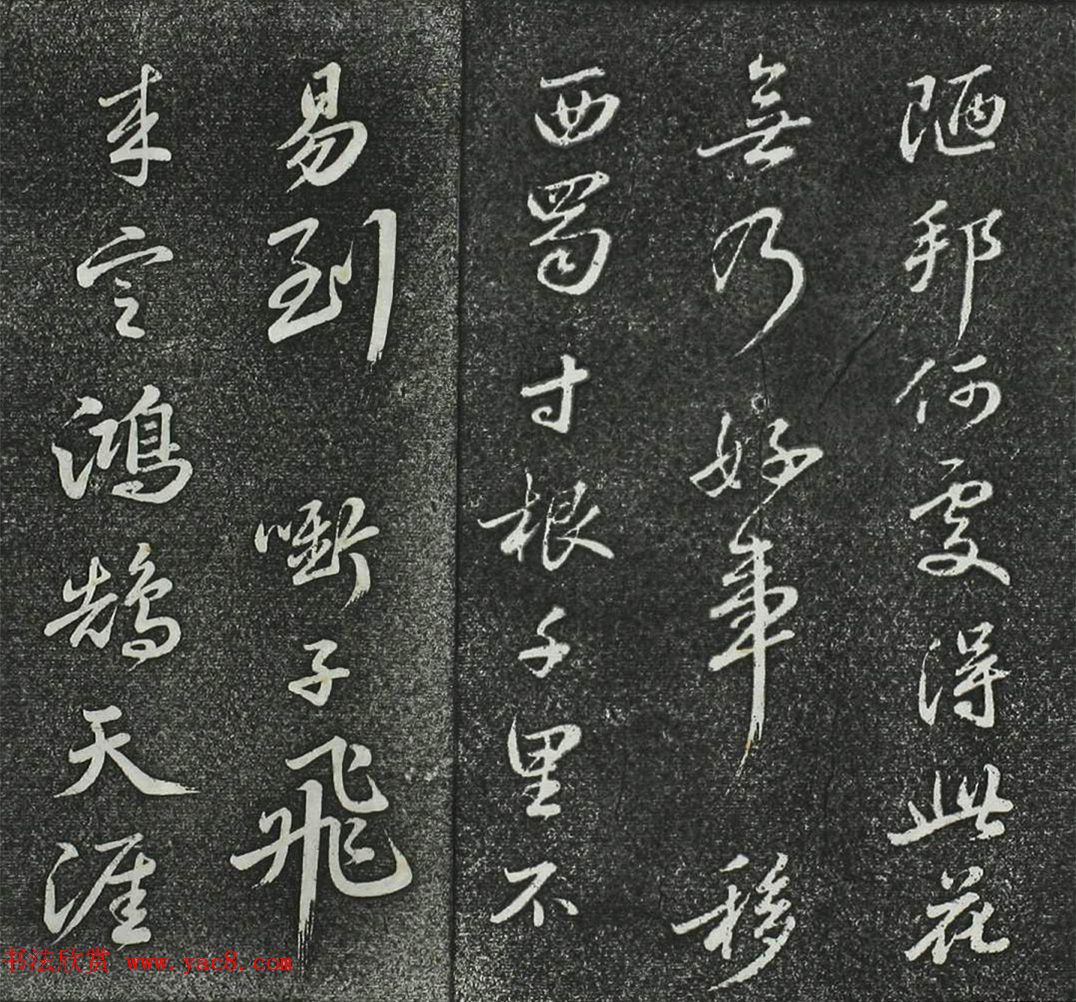 陋邦何處得此花
無乃好事移
西蜀寸根千里不
易到啣子飛
来定鴻鵠天涯
书法欣赏 www.yac8.com